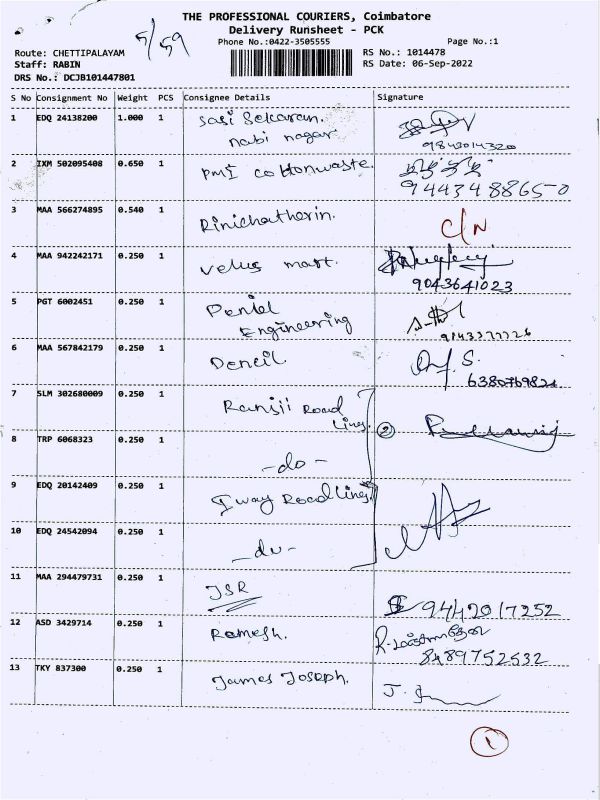 THE PROFESSIONAL COURIERS, Coimbatore
Delivery Runsheet - PCK
5/59
Phone No.:0422-3505555
Page No.:1
Route: CHETTIPALAYAM
RS No.: 1014478
Staff: RABIN
RS Date: 06-Sep-2022
DRS No.: DCJB101447801
S No Consignment No Weight PCS Consignee Details Signature
1 EDQ 24138200 1.000 1 Sasi Sekaran.
nabi nagar.
9843014320
2 IXM 502095408 0.650 1 PMI cottonwaste.
9443488650
3 MAA 566274895 0.540 1 Rinichatherin. C/N
4 MAA 942242171 0.250 1 Velus mart.
9043641023
5 PGT 6002451 0.250 1 Peniel
Engineering
6 MAA 567842179 0.250 1 Dencil
7 SLM 302680009 0.250 1 Ranjii Road
Lines.
2
8 TRP 6068323 0.250 1 -do-
9 EDQ 20142409 0.250 1 I way Road Lines.
10 EDQ 24542094 0.250 1 -do-
11 MAA 294479731 0.250 1 JSR 9442017252
12 ASD 3429714 0.250 1 Ramesh.
8489752532
13 TKY 837300 0.250 1 James Joseph.
1